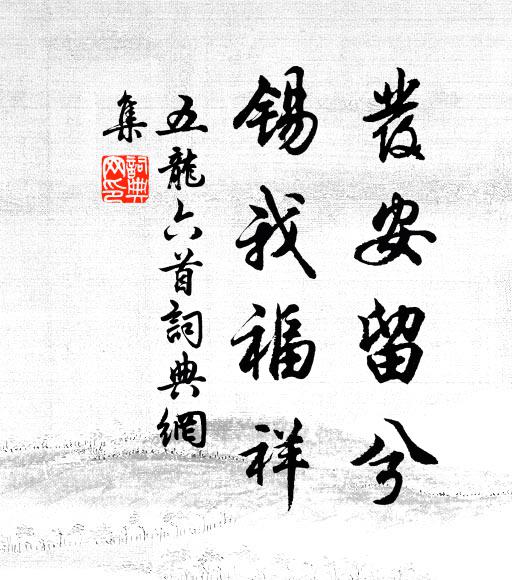 發安留兮
錫我福祥
五龍六首詞典網
集
詞典
网印